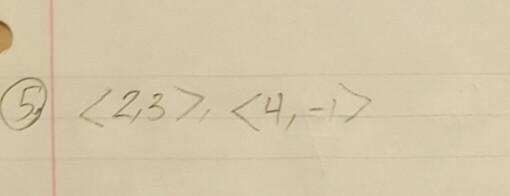 5. <2,3>, <4,-1>